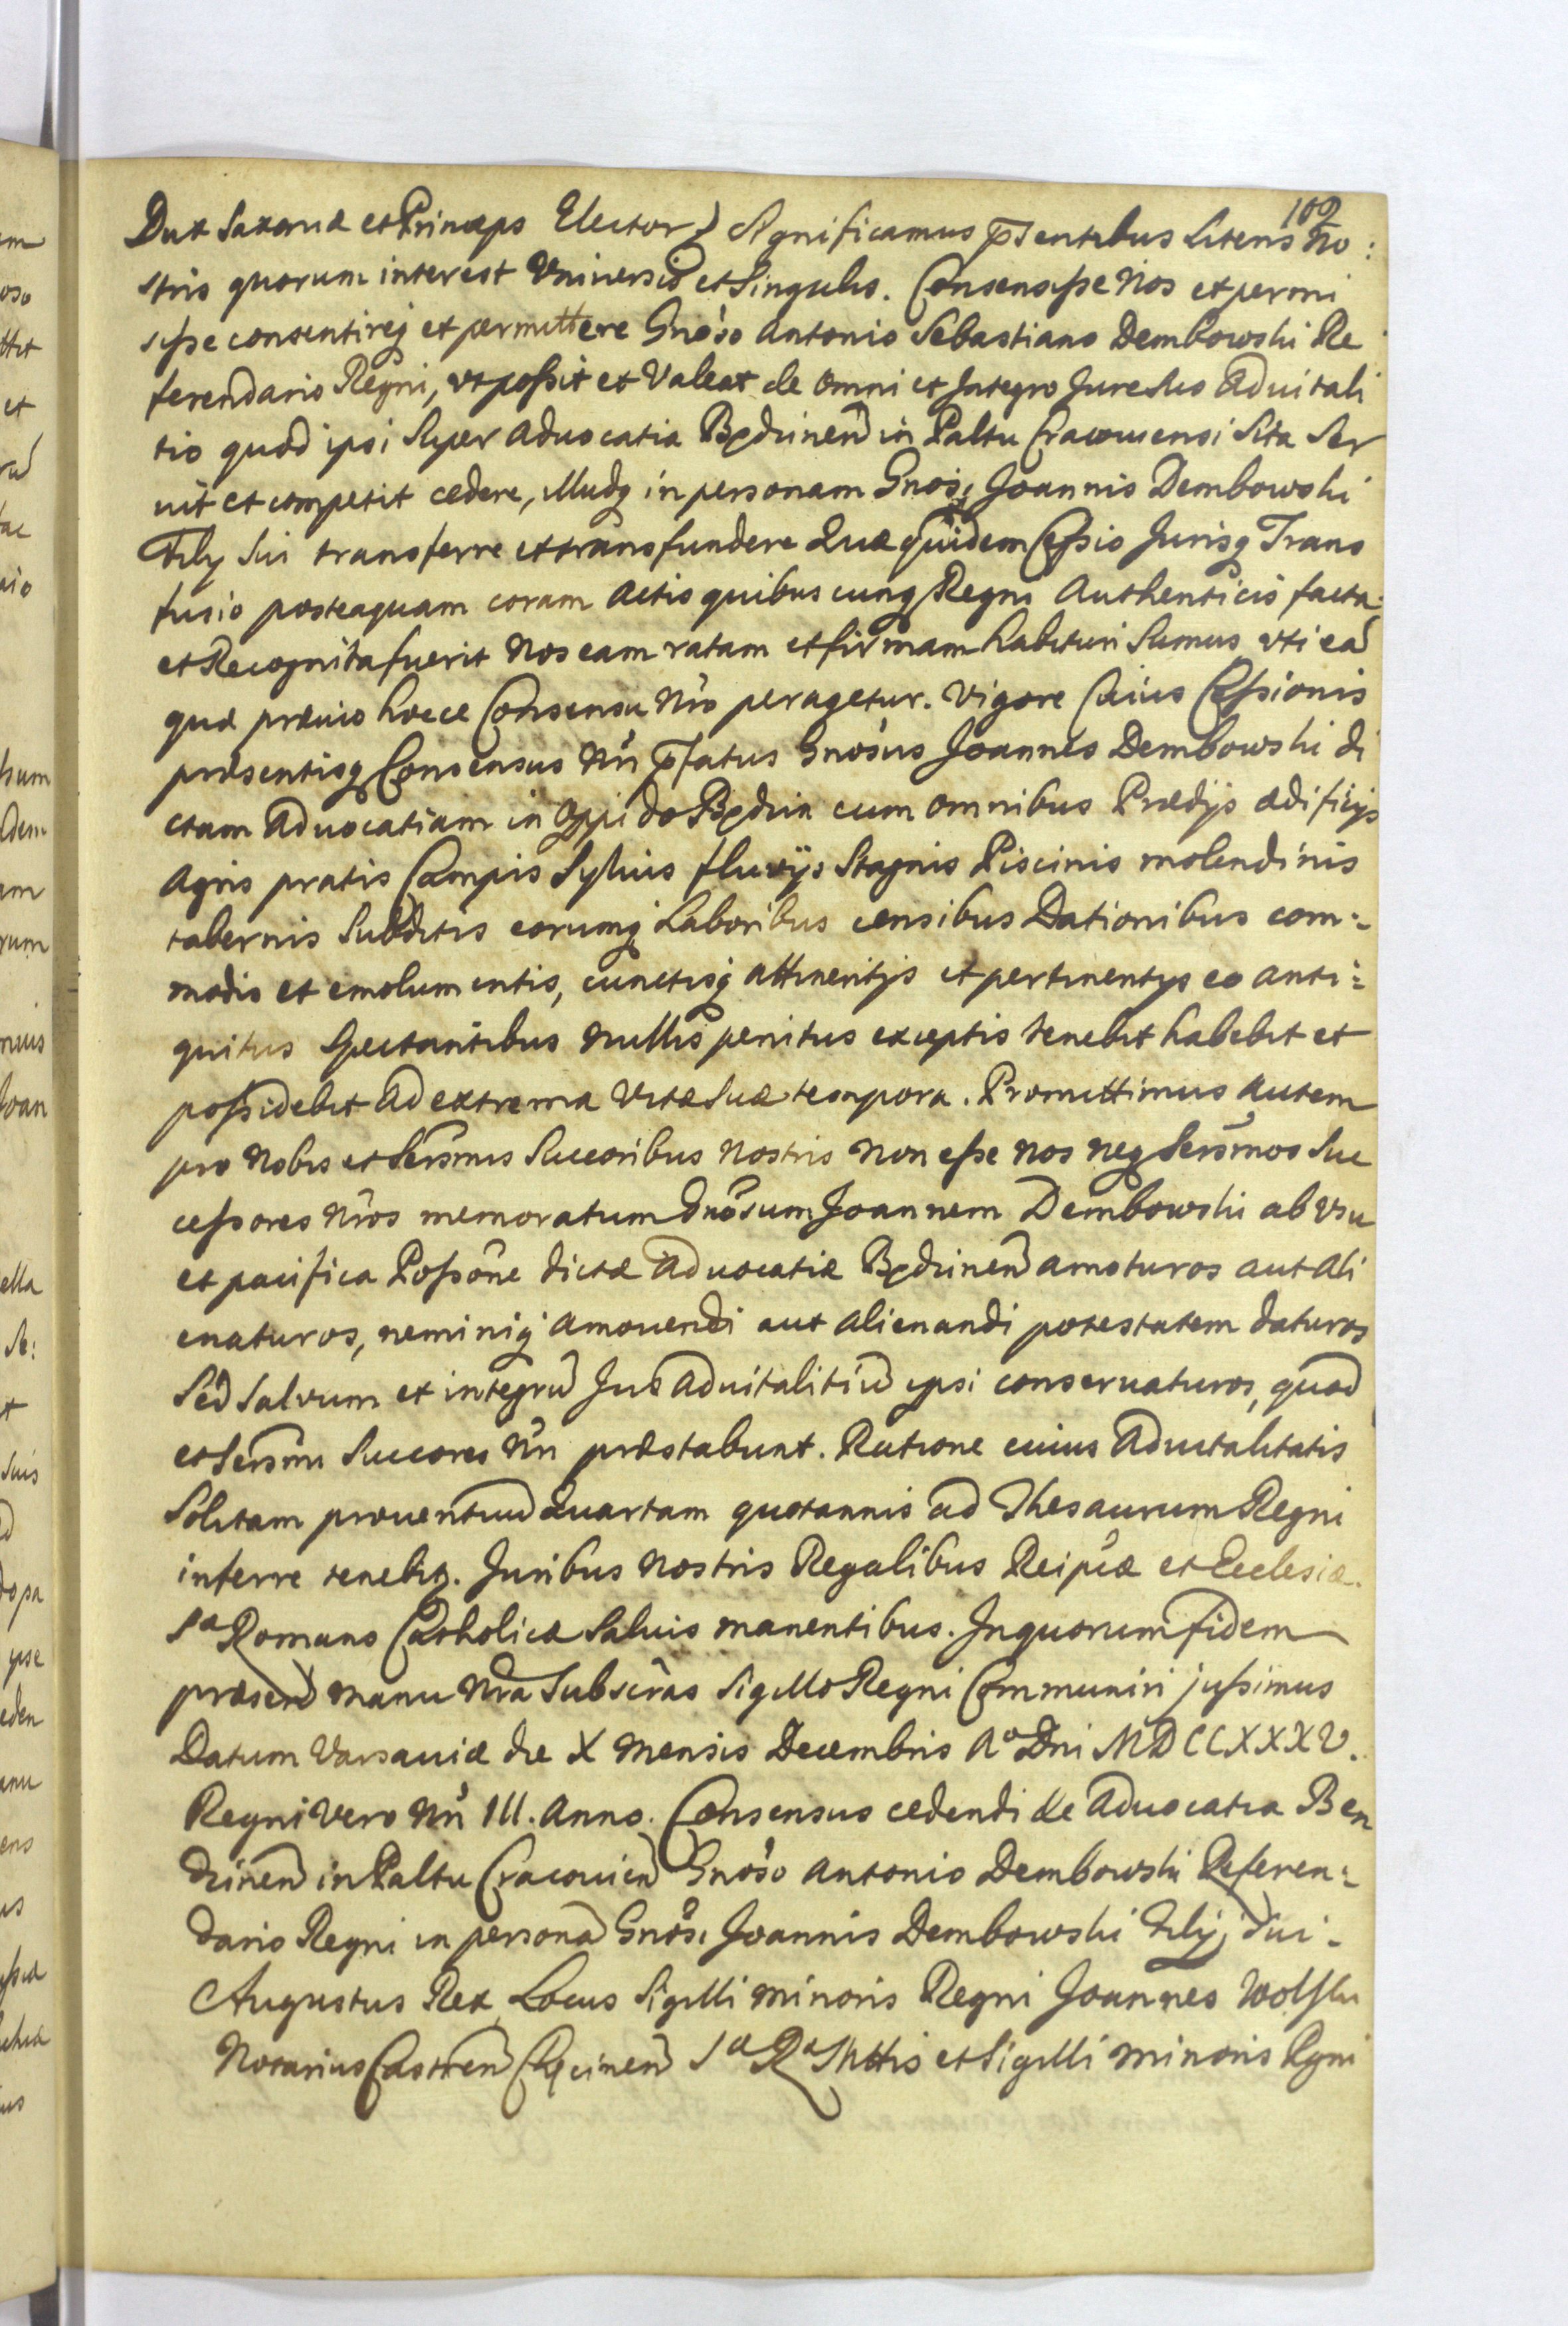 102
Dux Saxoniæ et Princeps Elector) Significamus p͞sentibus Literis No:
stris quorum interest Universis et Singulis. Consensisse Nos et permi
sisse consentireq et permittere Gnõso Antonio Sebastiano Dembowski Re
ferendario Regni, ut possit et Valeat de omni et Integro Jure Suo Advitali
tio quod ipsi Super Advocatia Będzinen̄ in Paltu Cracoviensi Sita Ser
vit et competit cedere, illudq in personam Gnosi Joannis Dembowski
Filÿ Sui transferre et transfundere Quæ quidem Cessio Jurisq Trans
fusio posteaquam coram Actis quibus cunq Regni Authenticis facta
et Recognita fuerit Nos eam ratam et firmam habituri Sumus, uti ea
quæ prævio hocce Consensu Nr̃o peragetur. Vigore Cuius Cessionis
præsentisq Consensus Nr̃i p͞fatus Gnosus Joannes Dembowski di
ctam Advocatiam in Oppido Będzin cum omnibus Prædijs ædificijs
Agris pratis Campis Sylvis fluvijs Stagnis Piscinis molendinis
tabernis Subditis eorumq Laboribus censibus Dationibus com:
modis et emolumentis, cunctisq attinentijs et pertinentijs eo anti:
quitus Spectantibus Nullis penitus exceptis tenebit habebit et
possidebit Ad extrema Vitæ Suæ tempora. Promittimus autem
pro Nobis et Serẽmis Succoribus Nostris Non esse Nos neq Serẽmos Suc
cessores Nr̃os memoratum Gnõsum Joannem Dembowski ab usu
et pacifica Possõne dictæ Advocatiæ Będzinen̄ amoturos aut Ali
enaturos, neminiq amovendi aut alienandi potestatem daturos
Sed Salvum et integrũ Jus Advitalitiũ ipsi conservaturos, quod
et Serẽmi Succores Nr̃i præstabunt. Ratione cuius Advitalitatis
Solitam proventuũ Quartam quotannis ad Thesaurum Regni
inferre tenebit. Juribus Nostris Regalibus Reipcæ et Ecclesiæ
Sæ Romano Catholicæ Salvis manentibus. In quorum fidem
præsen̄ manu Nr̃a Subscr̃as Sigillo Regni Communiri jussimus
Datum Varsaviæ die X Mensis Decembris Aº Dni MDCCXXXV.
Regni Vero Nr̃i III. Anno. Consensus cedendi de Advocatia Ben
dzinen̄ in Paltu Cracovien̄ Gnõso Antonio Dembowski Referen:
dario Regni in personã Gnõsi Joannis Dembowski Filij Sui.
Augustus Rex Locus Sigilli Minoris Regni Joannes Wolski
Notarius Castren̄ Sæ Ræ Mttis et Sigilli Minoris Rgni